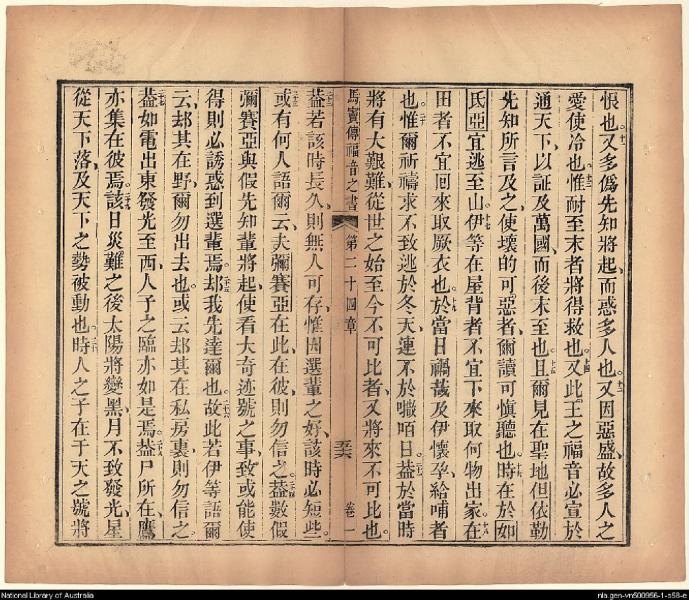 恨也又多偽先知將起而惑多人也十二又因惡盛故多人之
愛使冷也十三惟耐至末者將得救也十四又此王之福音必宣於
通天下以証及萬國而後末至也十五且爾見在聖地但依勤
先知所言及之使壞的可惡者爾讀可慎聽也十六時在於如
氐亞宜逃至山十七伊等在屋背者不宜下來取何物出家十八在
田者不宜回來取厥衣也十九於當日禍哉及伊懷孕給哺者
也二十惟爾祈禱求不致逃於冬天連不於嘞咟日二十一葢於當時
將有大艱難從世之始至今不可比者又將來不可比也
馬竇傳福音之書 第二十四章 卷一
二十二葢若該時長久則無人可存惟因選輩之好該時必短些
二十三或有何人語爾云夫彌賽亞在此在彼則勿信之二十四葢數假
彌賽亞與假先知輩將起使看大奇迹號之事致或能使
得則必誘惑到選輩焉二十五却我先達爾也二十六故此若伊等語爾
云却其在野爾勿出去也或云却其在私房裏則勿信之
二十七葢如電出東發光至西人子之臨亦如是焉二十八葢尸所在鷹
亦集在彼焉二十九該日災難之後太陽將變黑月不致發光星
從天下落及天下之勢被動也三十時人之子在于天之號將
National Library of Australia
nla.gen-vn500956-1-s58-e